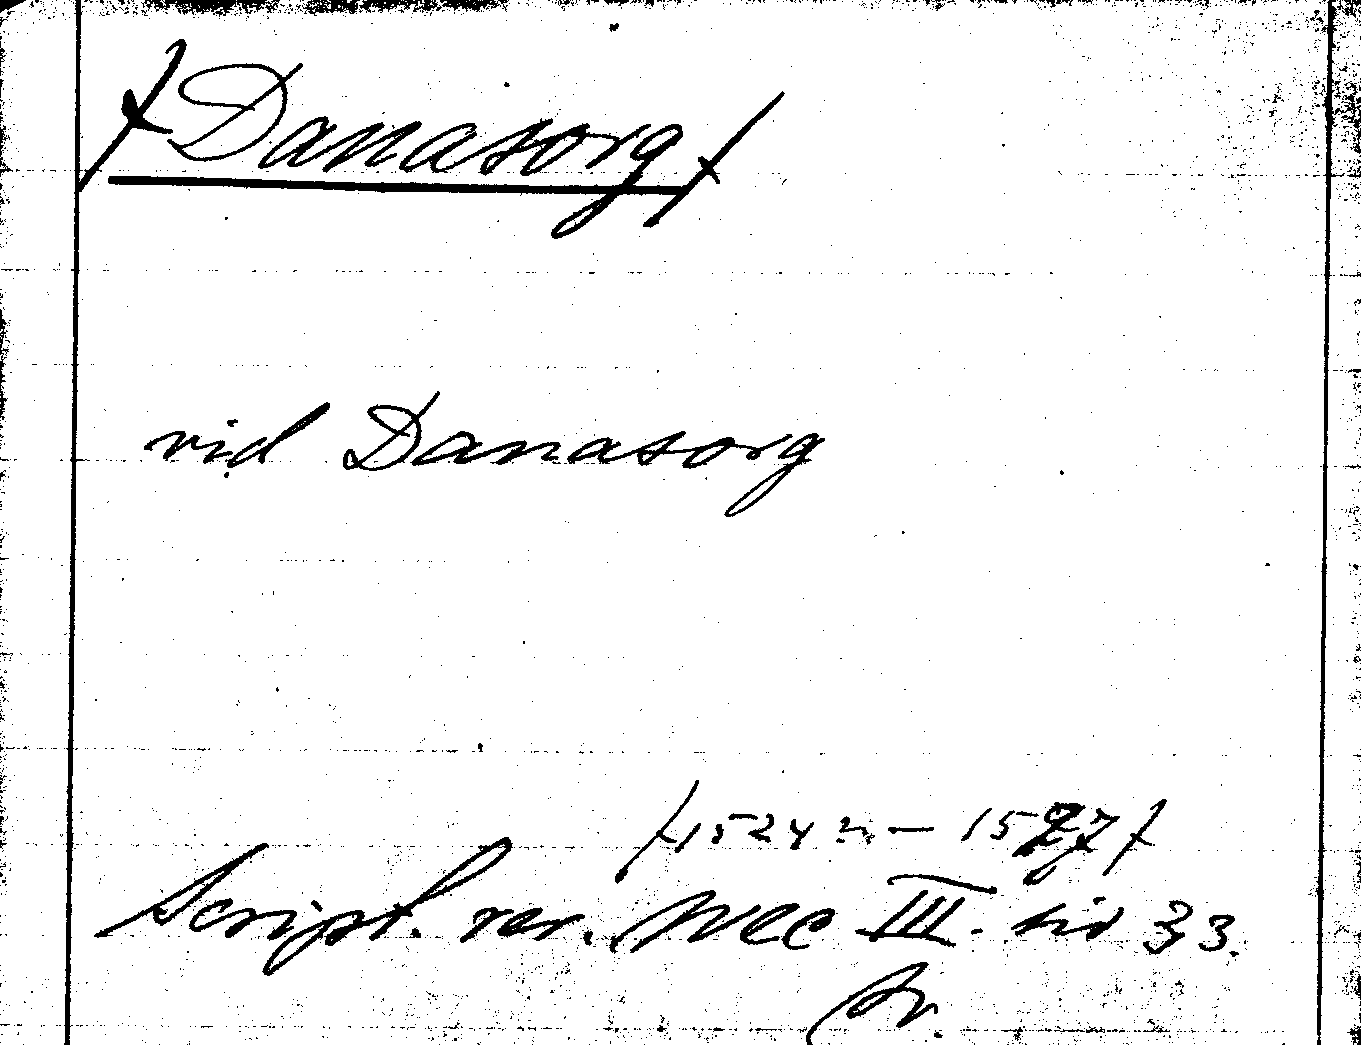 /Danasorg/
vid Danasorg
/1524 — 1527/
Script. rer. svec III. sid 33.